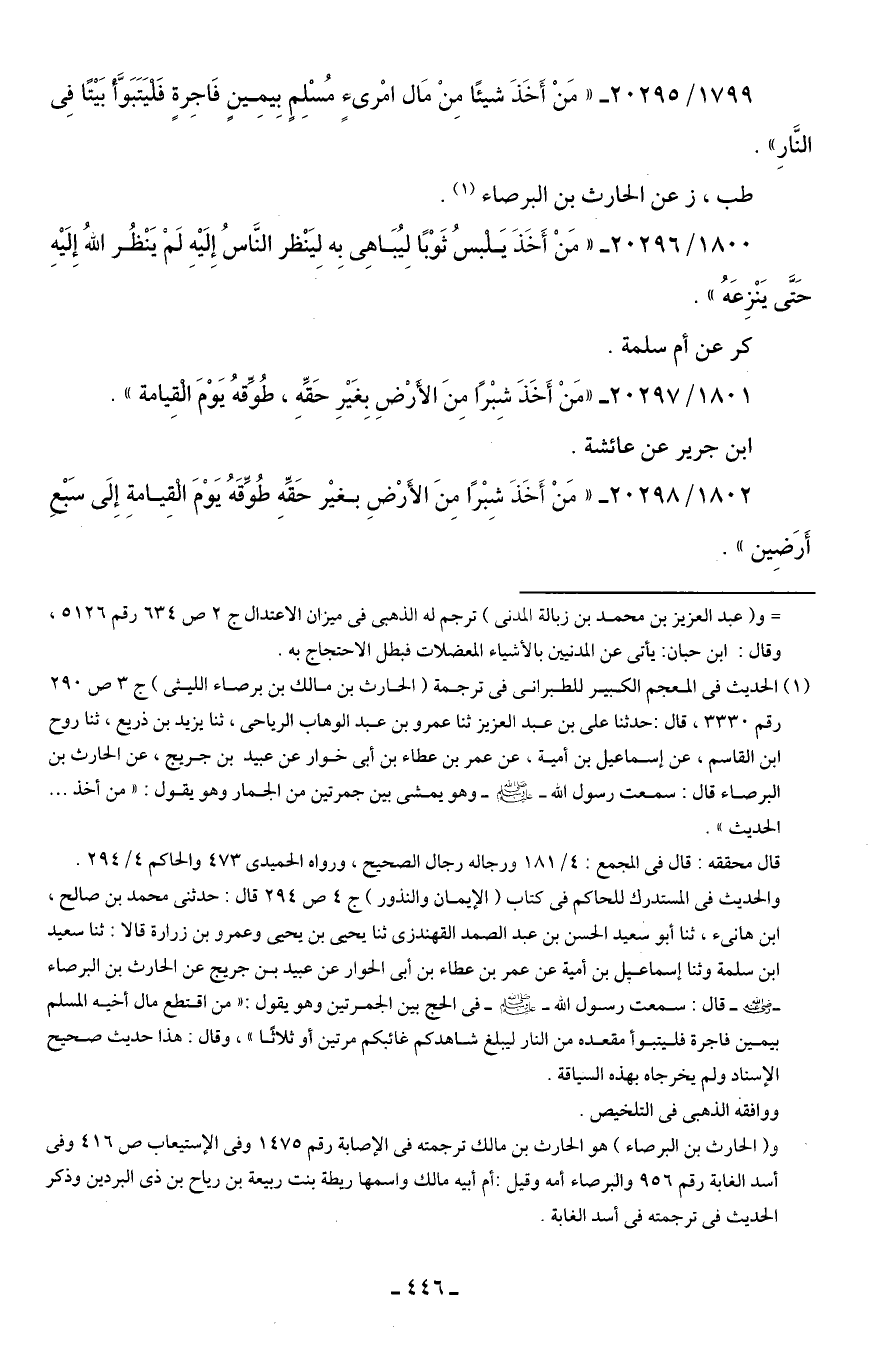 ١٧٩٩/ ٢٠٢٩٥ـ « مَنْ أَخَذَ شيئًا مِنْ مَال امْرِىءٍ مُسْلِمٍ بِيمِـينٍ فَاجِرةٍ فَلْيَتَبَوَّأْ بَيْتًا فِى
النَّارِ» .
طب ، ز عن الحارث بن البرصاء (١) .
١٨٠٠/ ٢٠٢٩٦ـ « مَنْ أَخَذَ يَـلْبسُ ثَوْبًا لِيُبَـاهِى بِه لِيَنْظر النَّاسُ إِلَيْهِ لَمْ يَنْظُـر اللهُ إِلَيْهِ
حَتَّى يَنْزِعَهُ » .
كر عن أم سلمة .
١٨٠١/ ٢٠٢٩٧ـ «مَنْ أَخَذَ شِبْرًا مِنَ الأَرْضِ بِغَيْرِ حَقِّه ، طُوِّقهُ يَوْمَ الْقِيامة » .
ابن جرير عن عائشة .
١٨٠٢/ ٢٠٢٩٨ـ « مَنْ أَخَذَ شِبْرًا مِنَ الأَرْضِ بـغيْر حَقِّه طُوِّقَهُ يَوْمَ الْقِيـامةِ إِلَى سَبْعِ
أَرَضِين » .
= و( عبد العزيز بن محمـد بن زبالة المدنى ) ترجم له الذهبى فى ميزان الاعتدال ج ٢ ص ٦٣٤ رقم ٥١٢٦ ،
وقال : ابن حبان: يأتى عن المدنيين بالأشياء المعضلات فبطل الاحتجاج به .
(١) الحديث فى المـعجم الكبيـر للطـبرانـى فى ترجمـة ( الحـارث بن مـالك بن برصـاء الليـثى ) ج ٣ ص ٢٩٠
رقم ٣٣٣٠ ، قال :حدثنا على بن عـبد العزيز ثنا عمرو بن عبد الوهاب الرياحى ، ثنا يزيد بن ذريع ، ثنا روح
ابن القاسم ، عن إسـماعيل بن أميـة ، عن عمر بن عطاء بن أبى خـوار عن عبيد بن جـريج ، عن الحارث بن
البرصـاء قال : سمـعت رسول الله ـ ﷺ ـ وهو يمـشى بين جمرتين من الجـمار وهو يقـول : « من أخذ ...
الحديث » .
قال محققه : قال فى المجمع : ٤/ ١٨١ ورجاله رجال الصحيح ، ورواه الحميدى ٤٧٣ والحاكم ٤/ ٢٩٤ .
والحديث فى المستدرك للحاكم فى كتاب ( الإيمـان والنذور ) ج ٤ ص ٢٩٤ قال : حدثنى محمد بن صالح ،
ابن هانىء ، ثنا أبو سعيد الحسن بن عبد الصمد القهندزى ثنا يحيى بن يحيى وعمرو بن زرارة قالا : ثنا سعيد
ابن سلمة وثنا إسماعـيل بن أمية عن عمر بن عطاء بن أبى الحوار عن عبيد بـن جريج عن الحارث بن البرصاء
ـ رضي الله عنه ـ قال : سـمعت رسـول الله ـ ﷺ ـ فى الحج بين الجمـرتين وهو يقول :« من اقـتطع مال أخيـه المسلم
بيمـين فاجرة فلـيتبـوأ مقعـده من النار ليبلغ شـاهدكم غائبكم مرتين أو ثلاثًـا » ، وقال : هذا حديث صـحيح
الإسناد ولم يخرجاه بهذه السياقة .
ووافقه الذهبى فى التلخيص .
و( الحارث بن البرصاء ) هو الحارث بن مالك ترجمته فى الإصابة رقم ١٤٧٥ وفى الإستيعاب ص ٤١٦ وفى
أسد الغابة رقم ٩٥٦ والبرصاء أمه وقيل :أم أبيه مالك واسمها ريطة بنت ربيعة بن رياح بن ذى البردين وذكر
الحديث فى ترجمته فى أسد الغابة .
ـ ٤٤٦ ـ